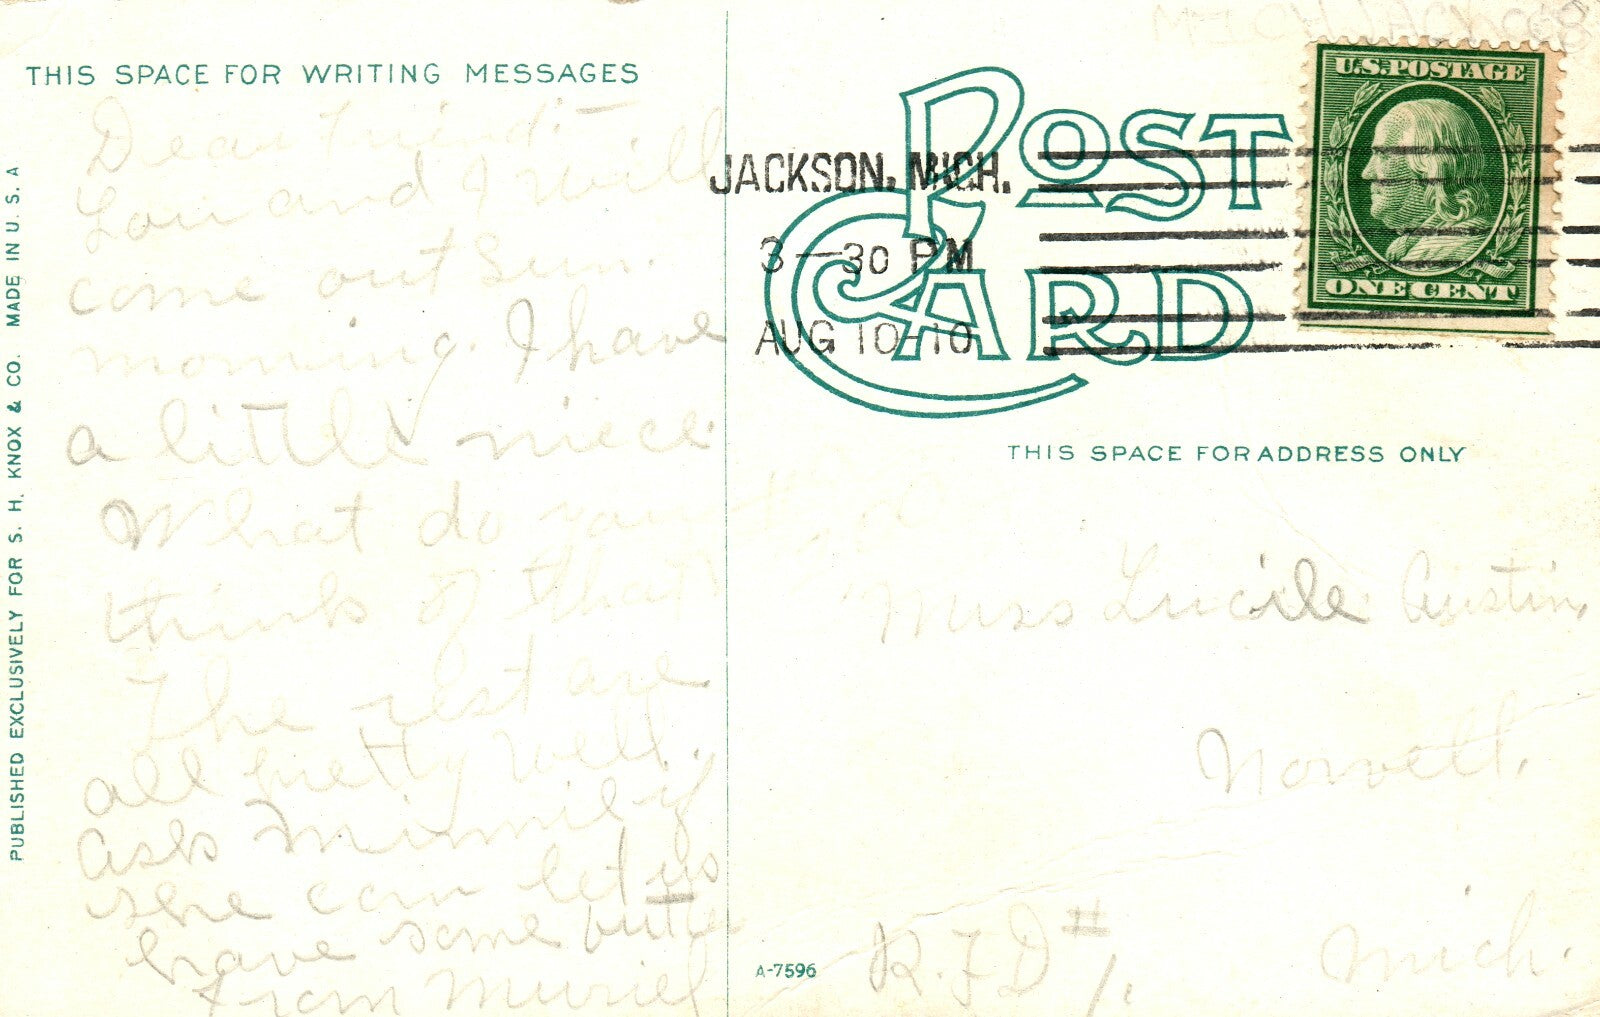 THIS SPACE FOR WRITING MESSAGES
Dear Friend:—
Lou and I will
come out Sun.
morning. I have
a little niece.
What do you
think of that
The rest are
all pretty well.
Ask Minnie if
she can let us
have some butter
From Muriel
PUBLISHED EXCLUSIVELY FOR S. H. KNOX & CO. MADE IN U. S. A
POST CARD
JACKSON, MICH.
3-30 PM
AUG 10-10
U.S. POSTAGE
ONE CENT
THIS SPACE FOR ADDRESS ONLY
Miss Lucile Austin,
Norvell,
R.F.D # 1. Mich.
A-7596